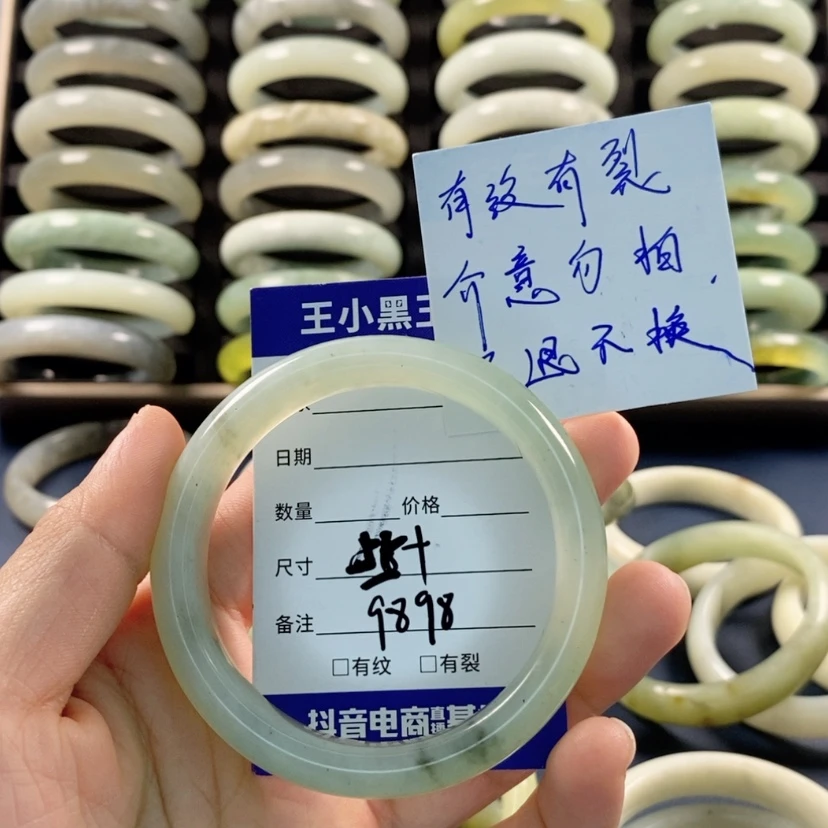 有纹有裂
介意勿拍.
退不换
王小黑王
日期
数量 价格
尺寸 55+
备注 9898
□有纹 □有裂
抖音电商直播基